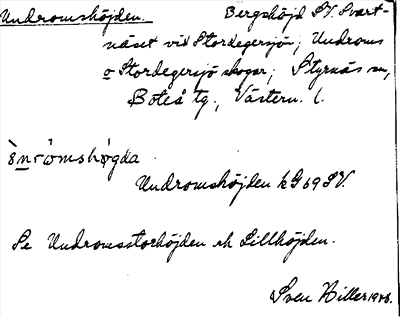 Undromshöjden. Bergshöjd SV. Svart-
näset vid Stordegersjön; Undroms
o Stordegersjö skogar; Styrnäs sn,
Boteå tg., Västern. l.
Undromshöjden kG69SV.
Se Undromsstorhöjden och Lillhöjden.
Sven Hiller 1946.